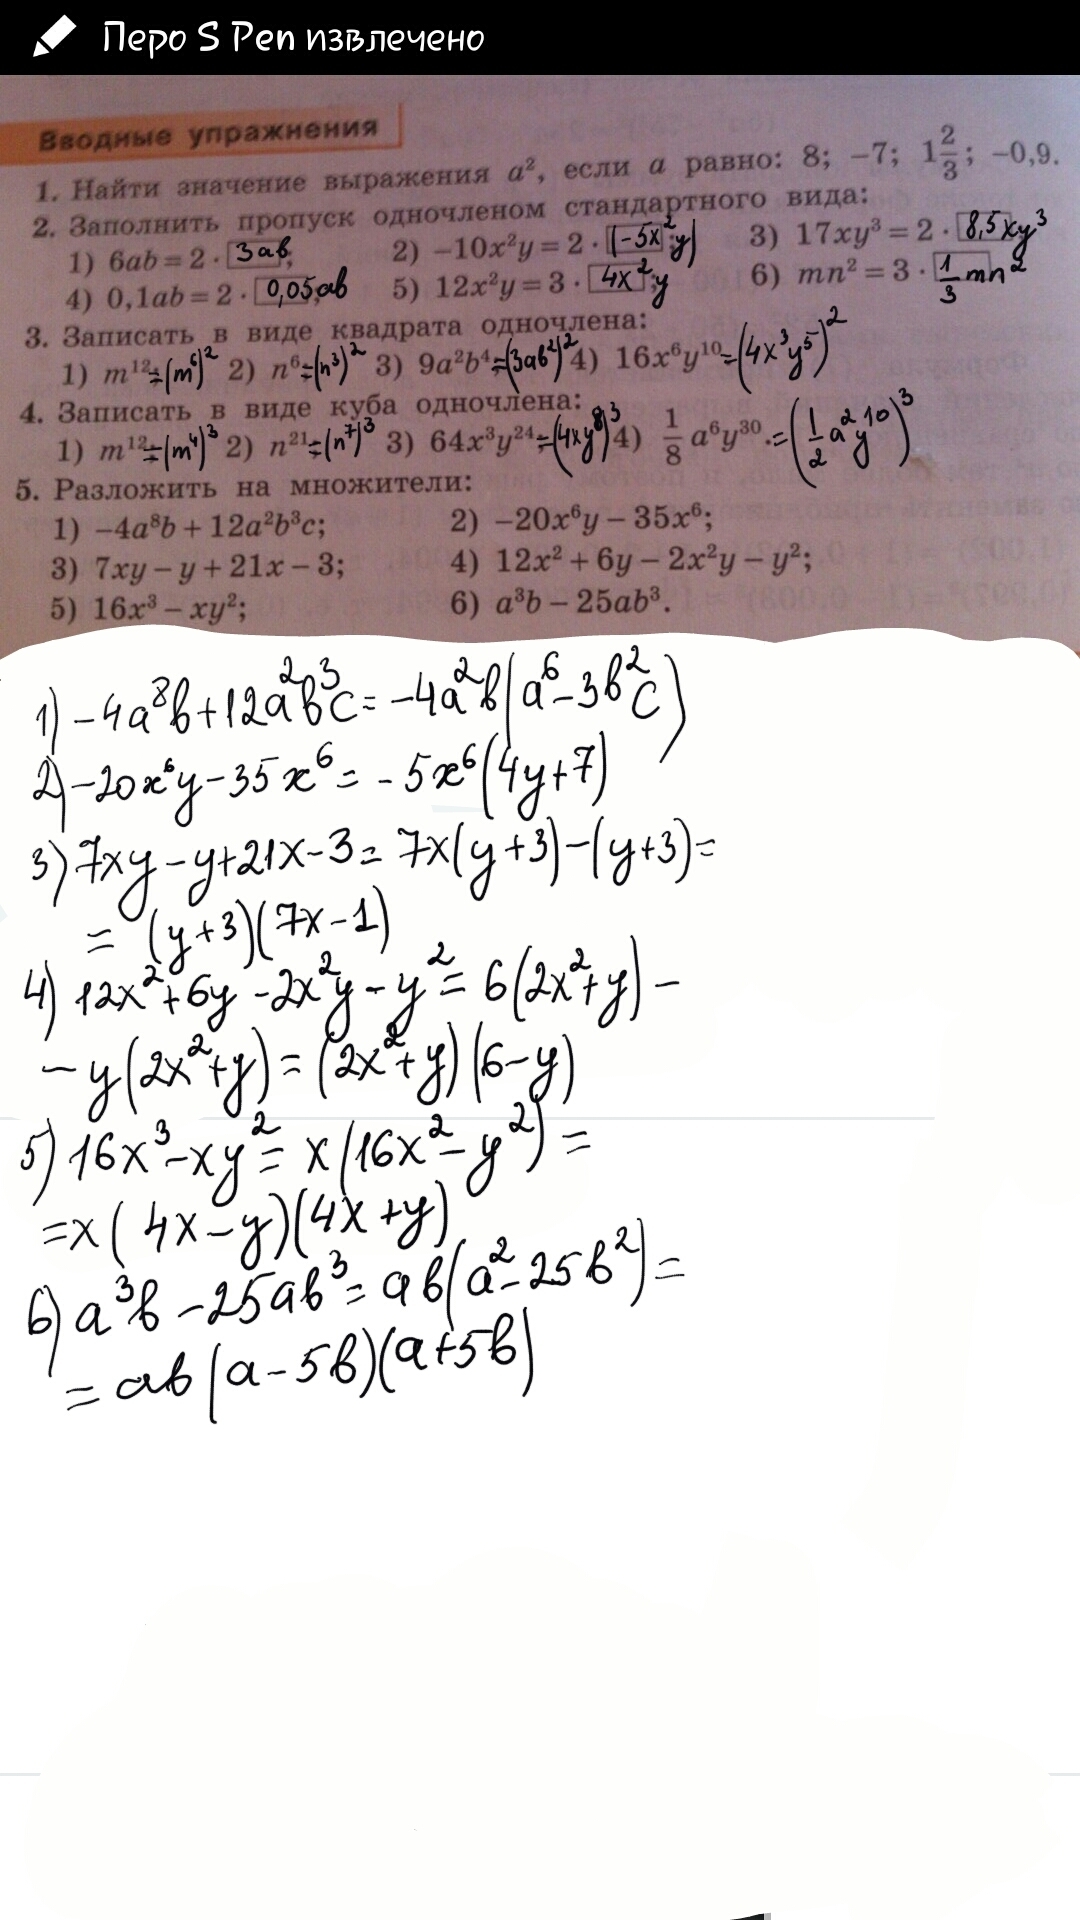 Перо S Pen извлечено
Вводные упражнения
1. Найти значение выражения a², если a равно: 8; −7; 1 2/3; −0,9.
2. Заполнить пропуск одночленом стандартного вида:
1) 6ab = 2 · 3ab; 2) −10x²y = 2 · (−5x²y) 3) 17xy³ = 2 · 8,5xy³
4) 0,1ab = 2 · 0,05ab 5) 12x²y = 3 · 4x²y 6) mn² = 3 · 1/3 mn²
3. Записать в виде квадрата одночлена:
1) m¹²=(m⁶)² 2) n⁶=(n³)² 3) 9a²b⁴=(3ab²)² 4) 16x⁶y¹⁰=(4x³y⁵)²
4. Записать в виде куба одночлена:
1) m¹²=(m⁴)³ 2) n²¹=(n⁷)³ 3) 64x³y²⁴=(4xy⁸)³ 4) 1/8 a⁶y³⁰.=(1/2 a²y¹⁰)³
5. Разложить на множители:
1) −4a⁸b + 12a²b³c; 2) −20x⁶y − 35x⁶;
3) 7xy − y + 21x − 3; 4) 12x² + 6y − 2x²y − y²;
5) 16x³ − xy²; 6) a³b − 25ab³.
1) −4a⁸b+12a²b³c= −4a²b(a⁶−3b²c)
2) −20x⁶y−35x⁶= −5x⁶(4y+7)
3) 7xy−y+21x−3= 7x(y+3)−(y+3)=
= (y+3)(7x−1)
4) 12x²+6y−2x²y−y²= 6(2x²+y)−
−y(2x²+y)=(2x²+y)(6−y)
5) 16x³−xy²= x(16x²−y²)=
=x(4x−y)(4x+y)
6) a³b−25ab³= ab(a²−25b²)=
= ab(a−5b)(a+5b)